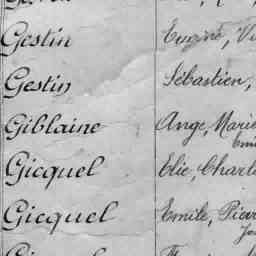 Gestin Eugène, Vi
Gestin Sébastien,
Giblaine Ange, Marie
Gicquel Elie, Charle
Gicquel Emile, Pierr